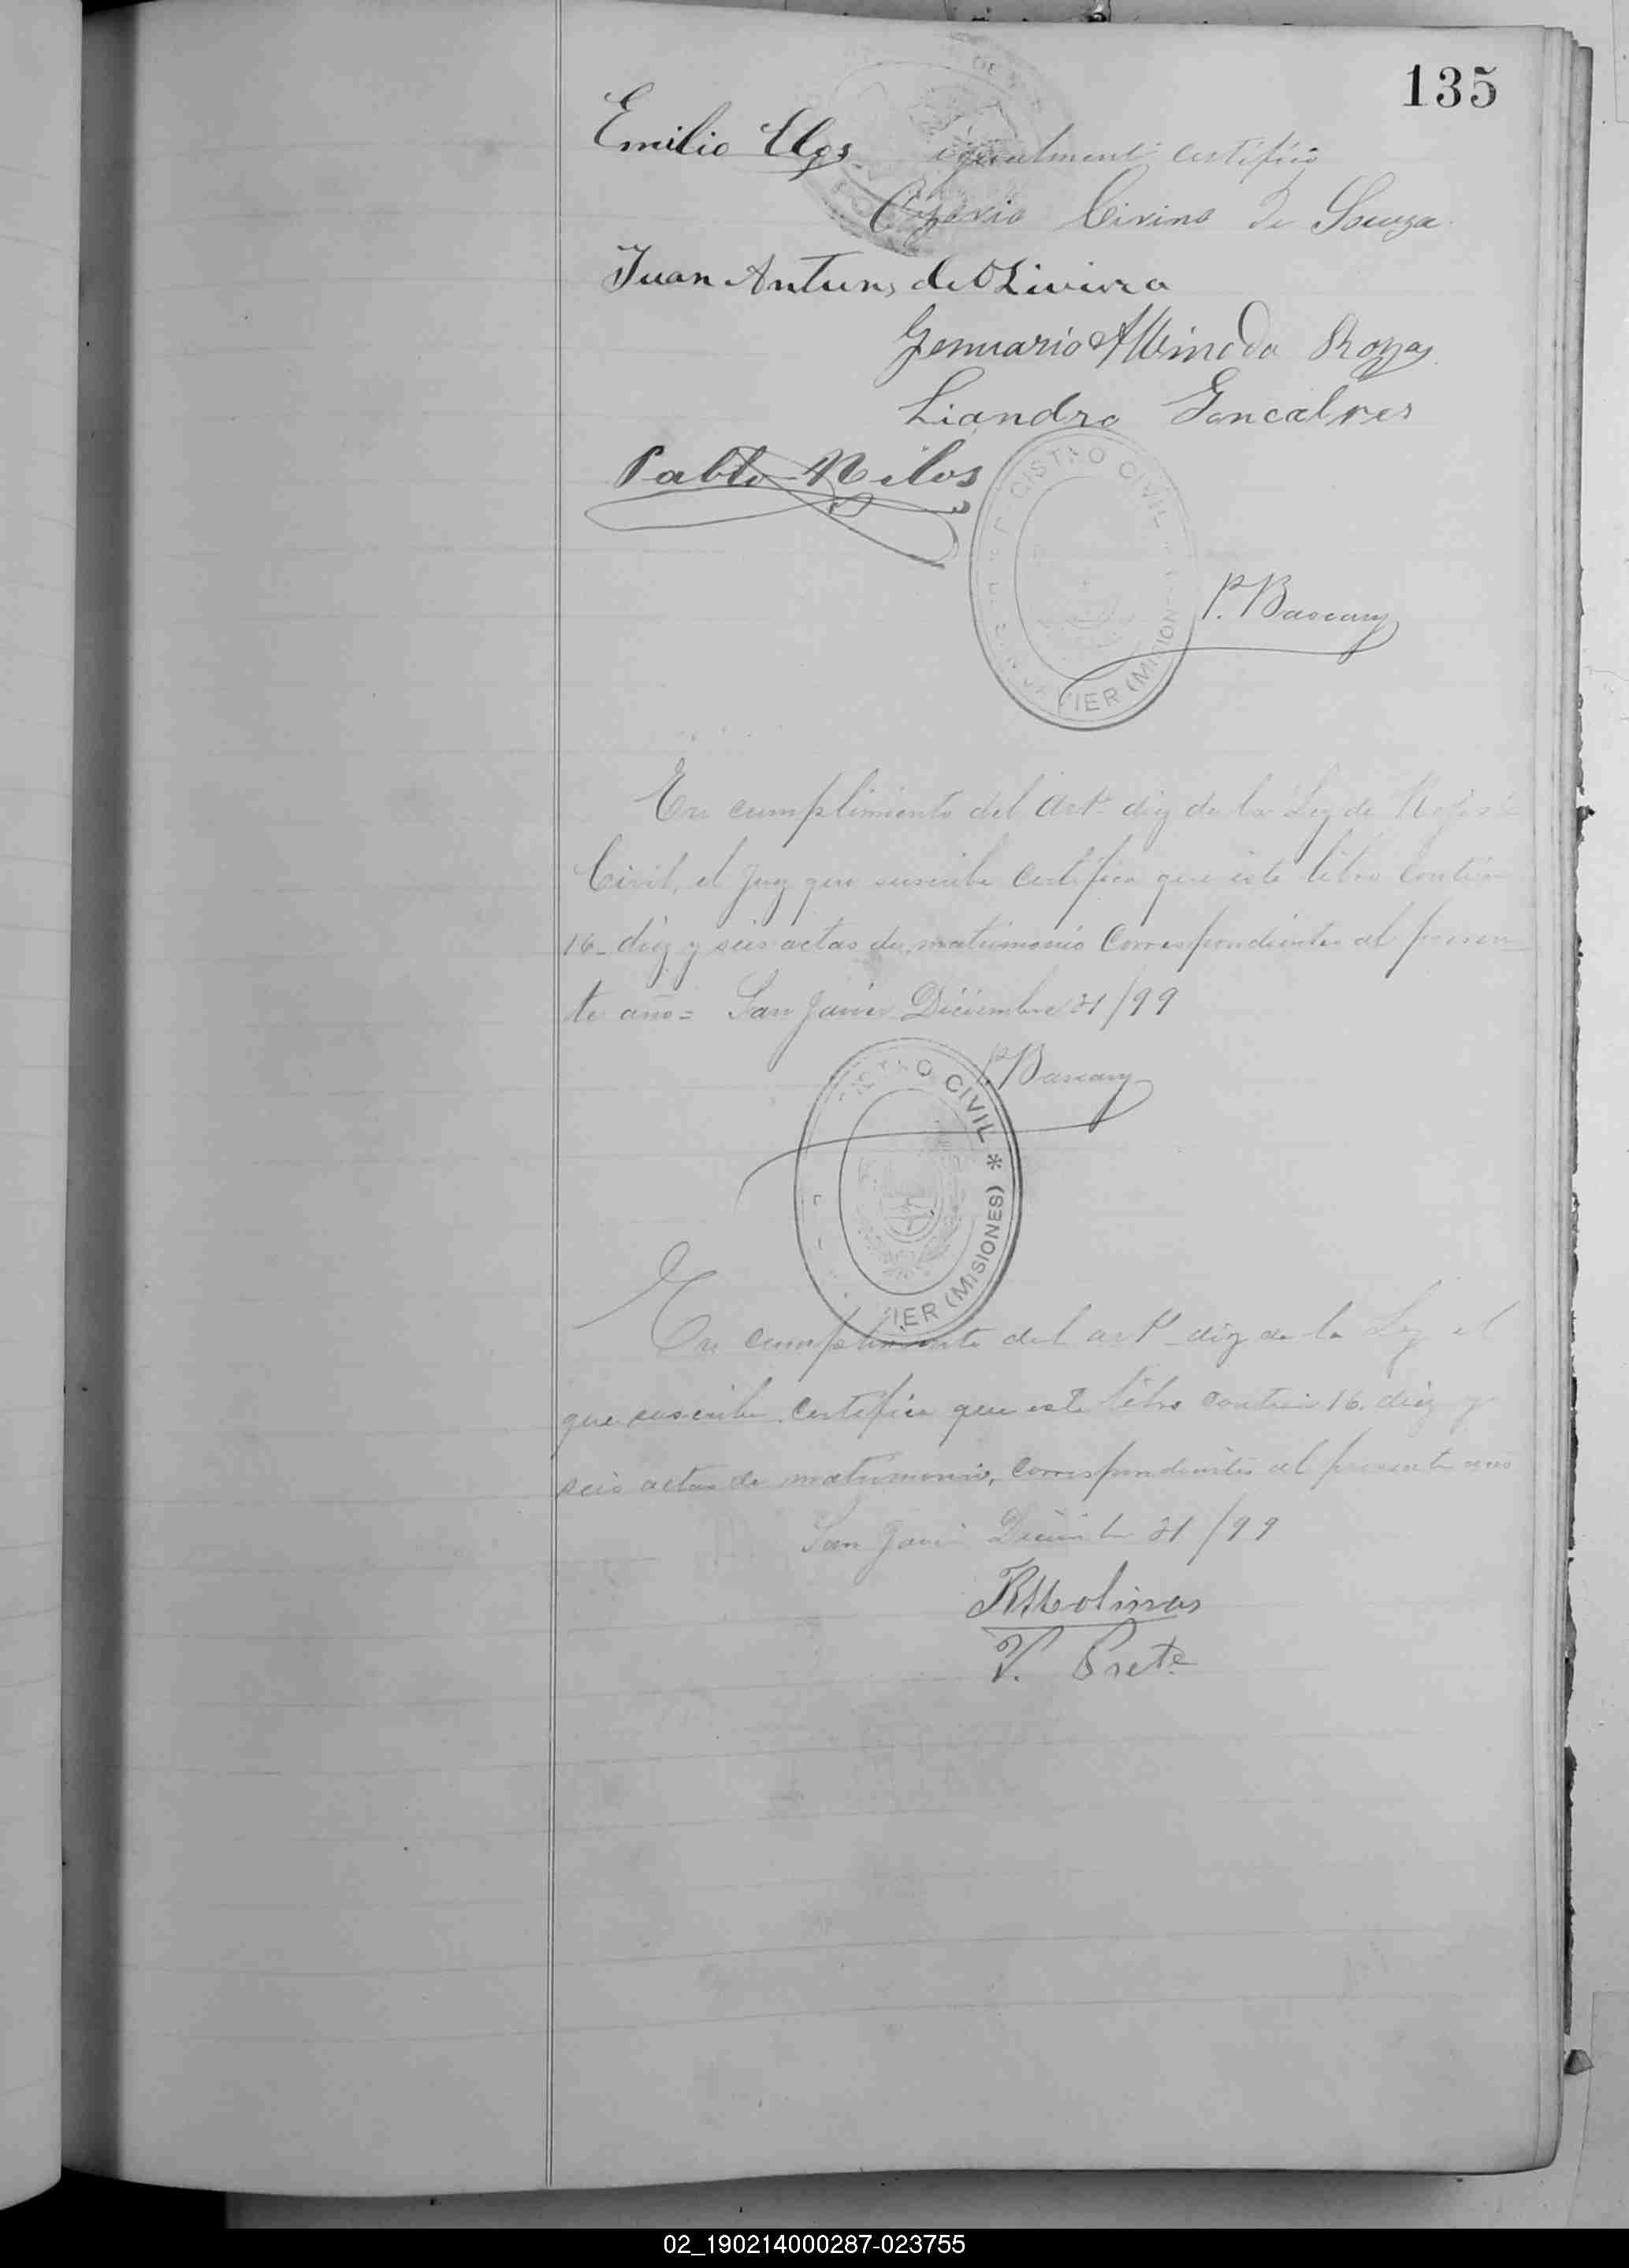 135
Emilio igualmente certifico
Civino de Souza
Juan Antuns de OLiviera
Jenuario Almeda Rosas
Liandro Goncalves
Pablo Nilos
REGISTRO CIVIL
VIER (MISIONES)
P. Bascary
En cumplimiento del artº diez de la Ley de Rejistro
Civil, el Juez que suscribe certifica que este libro contiene
16_ diez y seis actas de matrimonio correspondientes al presen
te año = San Javier Diciembre 31/99
P. Bascary
ISTRO CIVIL * VIER (MISIONES)
En cumplimiento del artº diez de la Ley el
que suscribe certifica que este libro contiene 16. diez y
seis actas de matrimonio, correspondientes al presente año
San Javier Diciembre 31/99
RMolinas
V. Prete
02_190214000287-023755